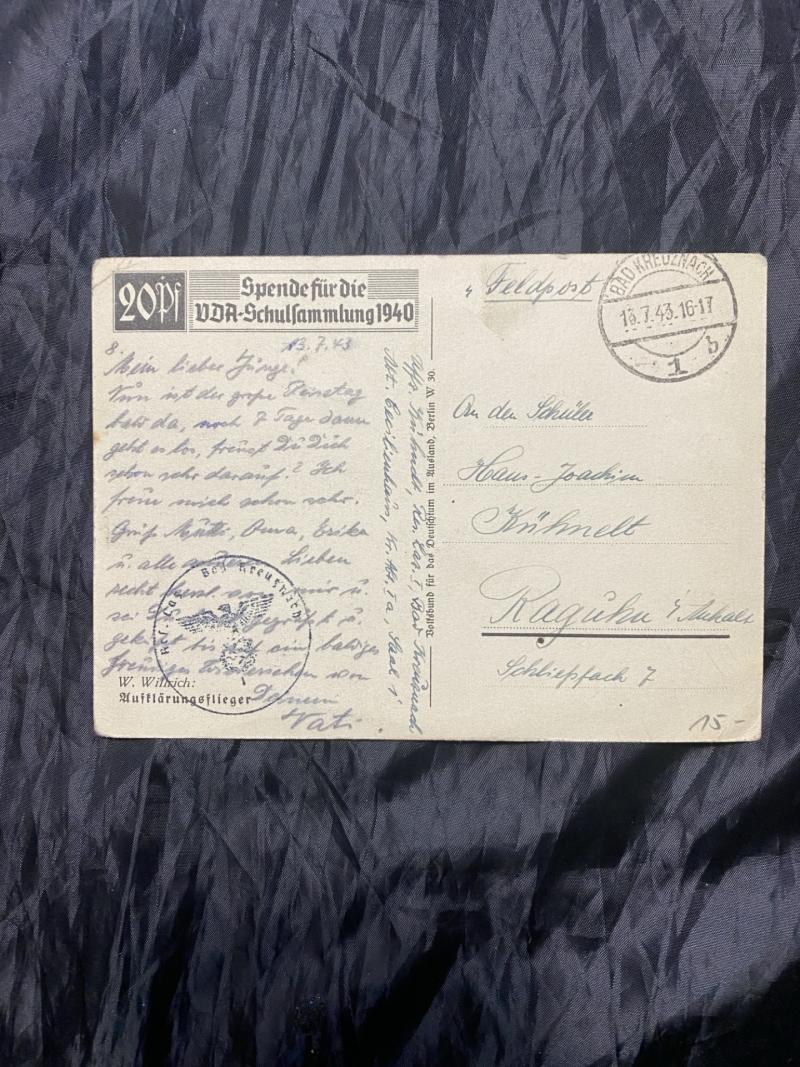 20 Pf
Spende für die
VDA-Schulsammlung 1940
8.
13.7.43
Mein lieber Junge!
Nun ist der große Reisetag
bald da, noch 7 Tage dann
geht es los, freust Du Dich
schon sehr darauf? Ich
freue mich schon sehr.
Grüß Mutti, Oma, Erika
u. alle anderen Lieben
recht herzl. von mir u.
sei Du gegrüßt u.
geküßt bis auf ein baldiges
freudiges Wiedersehen von
Deinem
Vati.
W. Willrich:
Aufklärungsflieger
Res. Laz. Bad Kreuznach
Uffz. Kühnelt, Res. Laz. I Bad Kreuznach
Abt. Cecilienhaus, Saal 1
Volksbund für das Deutschtum im Ausland, Berlin W 30.
Feldpost
BAD KREUZNACH
13.7.43.16-17
1 b
An den Schüler
Hans-Joachim
Kühnelt
Raguhn / Anhalt
Schließfach 7
15-